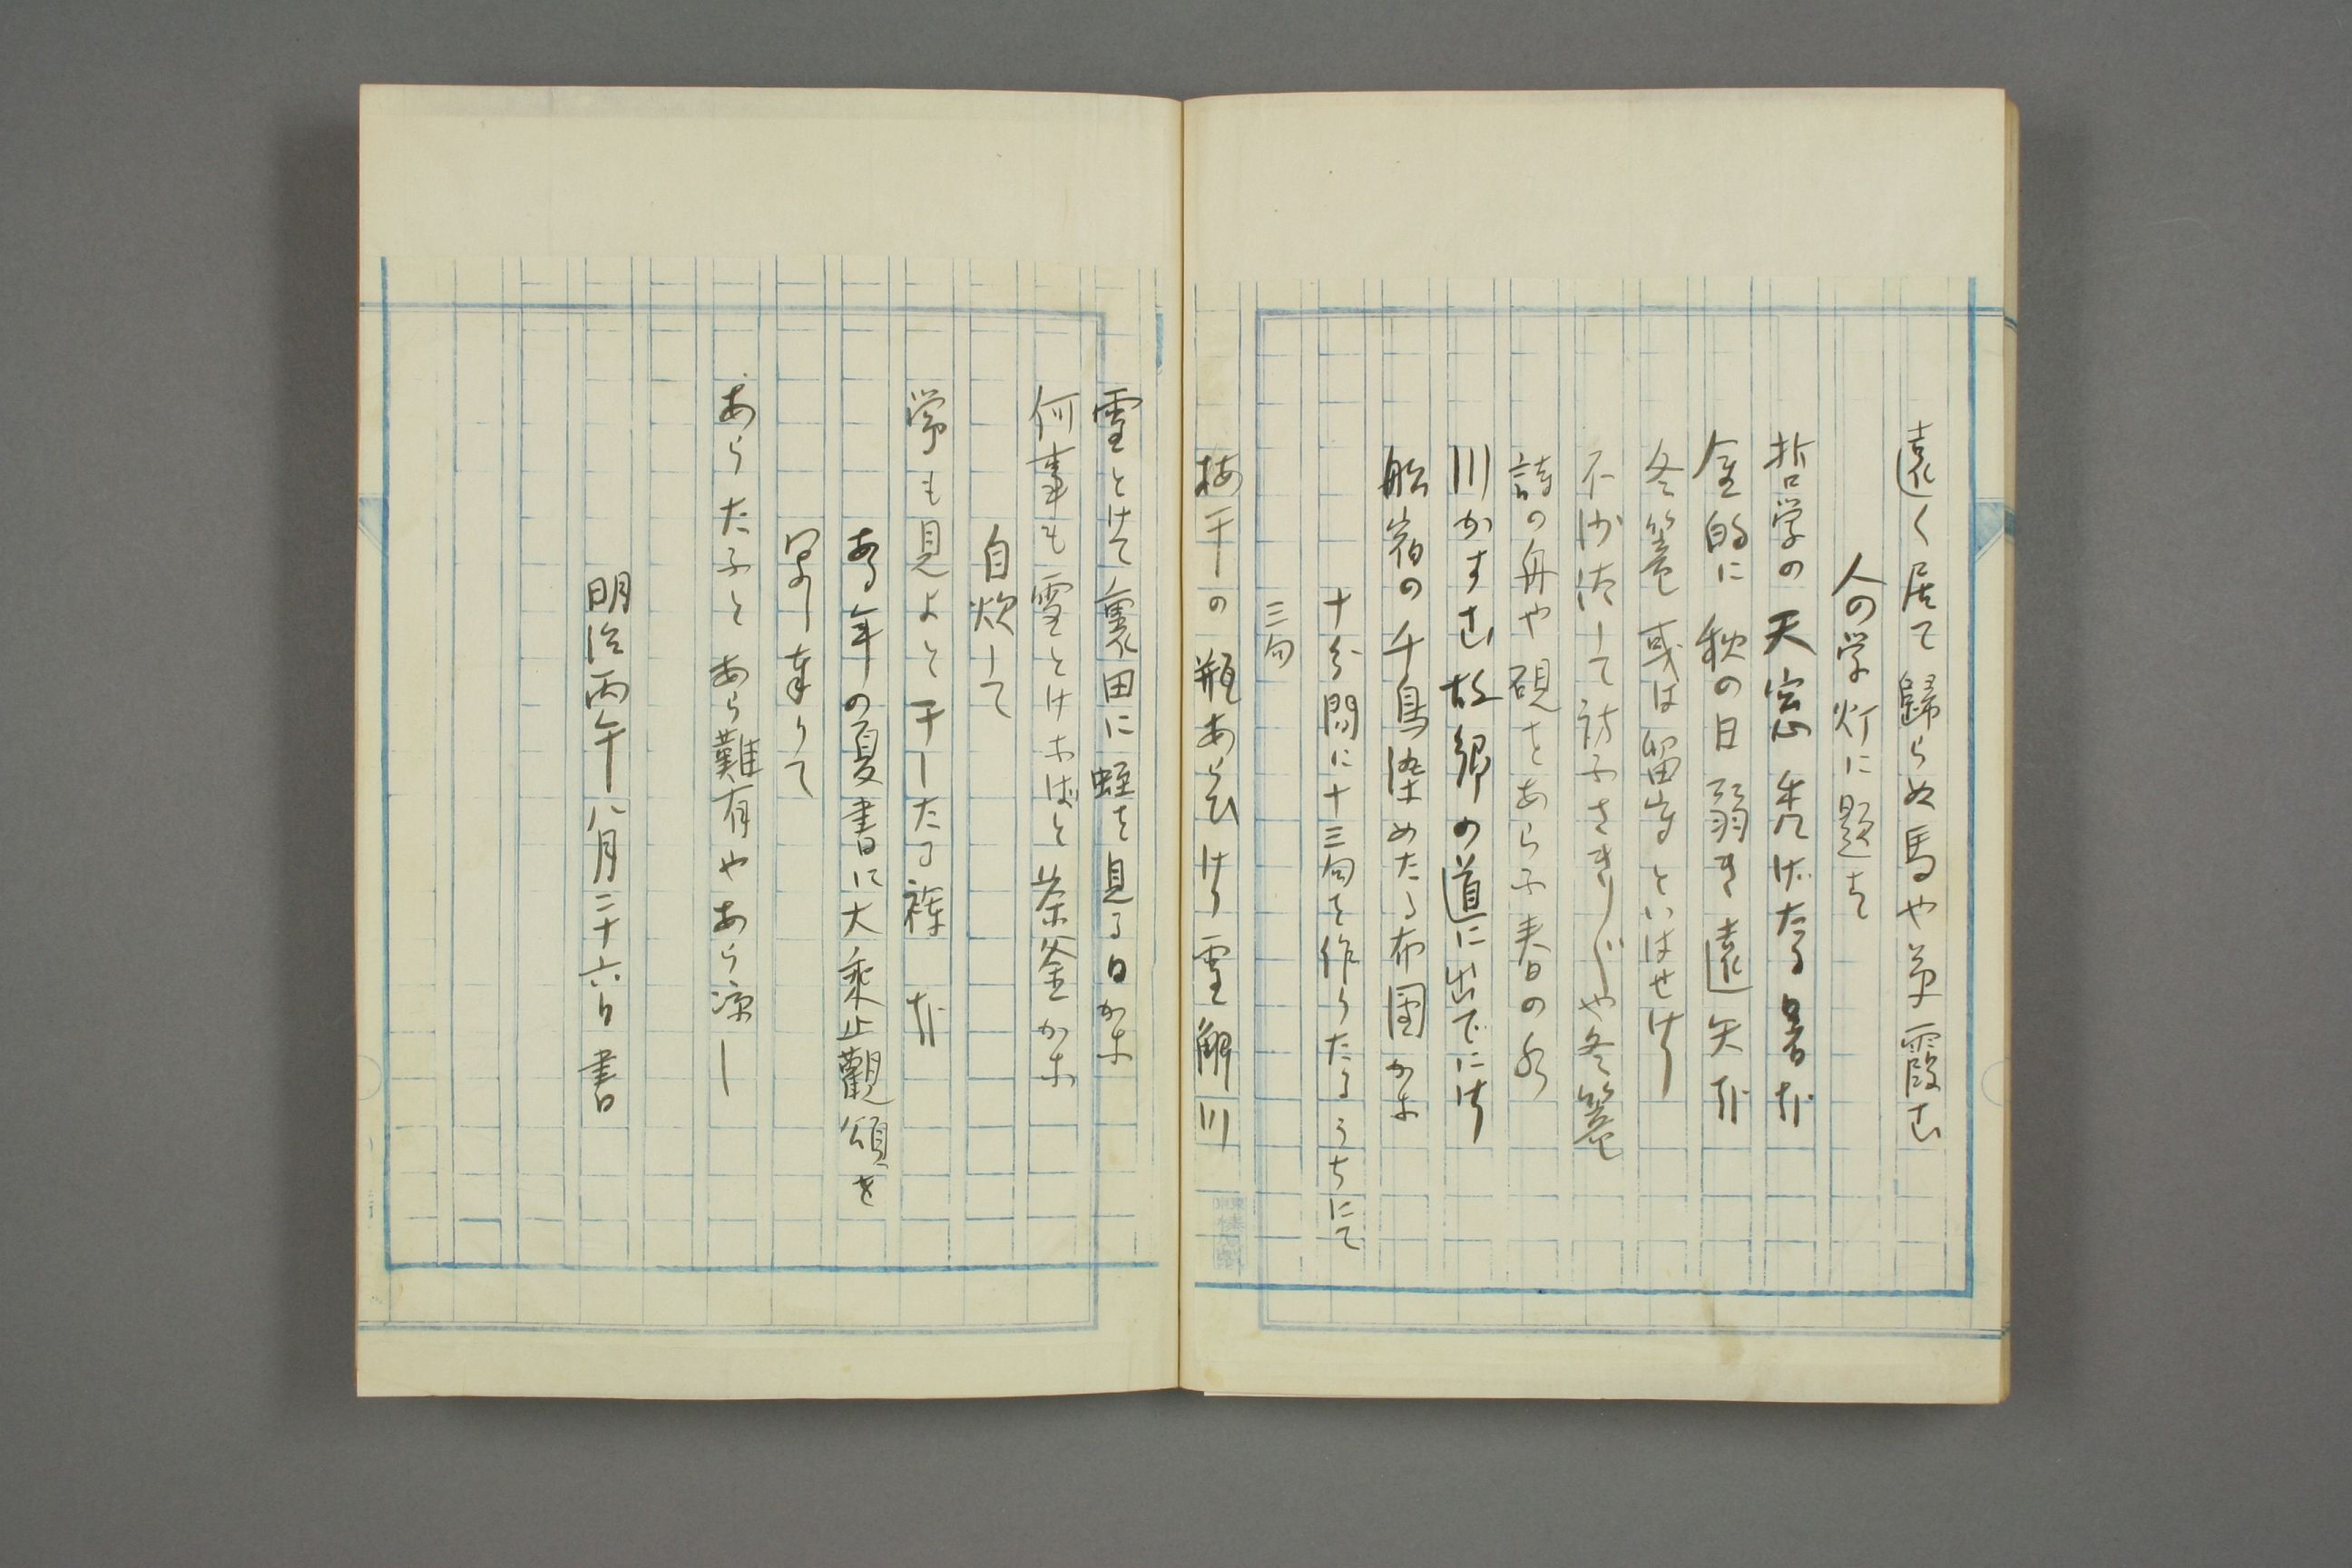 遠く居て歸らぬ馬や夕霞む
人の学灯に題さて
哲学の天窓禿げたる暑さ哉
金的に秋の日弱き遠矢哉
冬篭或は留守といはせけり
不沙汰して訪ふさきしや冬篭
詩の舟や硯をあらふ春の水
川かすむ故郷の道に出でにけり
船宿の千鳥染めたる布團かな
十分間に十三句を作りたるうちにて
三句
梅干の瓶あらひけり雪解川
雪とけて裏田に蛭を見る日かな
何事も雪とけなばと茶釜かな
自炊して
学も見よと干したる襷哉
ある年の夏書に大乘止觀頌を
写し奉りて
あらたふとあら難有やあら凉し
明治丙午八月二十六日書